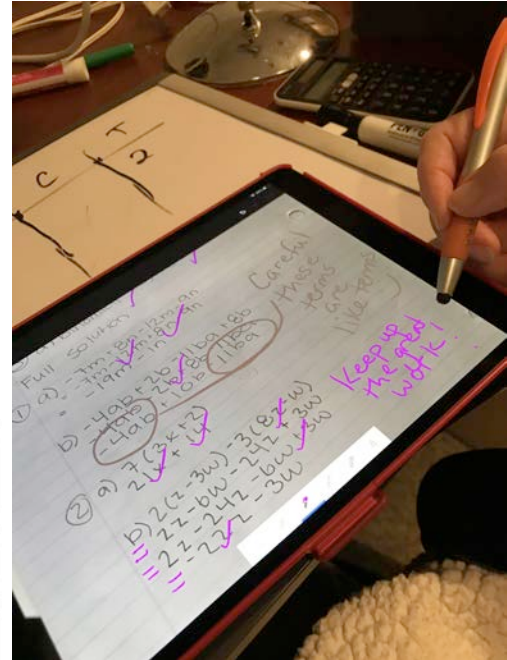 C T
2
Full Solution
① a) -7m+8n-12m-9n
= -7m-12m+8n-9n
-19m-1n
b) -4ab+2b+11ba+8b
-4ab+2b+8b+11ba
-4ab+10b+11ba
Careful
these
terms
are
like terms
② a) 7(3x+2)
21x+14
b) 2(z-3w)-3(8z-w)
= 2z-6w-24z+3w
= 2z-24z-6w+3w
= -22z-3w
Keep up
the great
work!